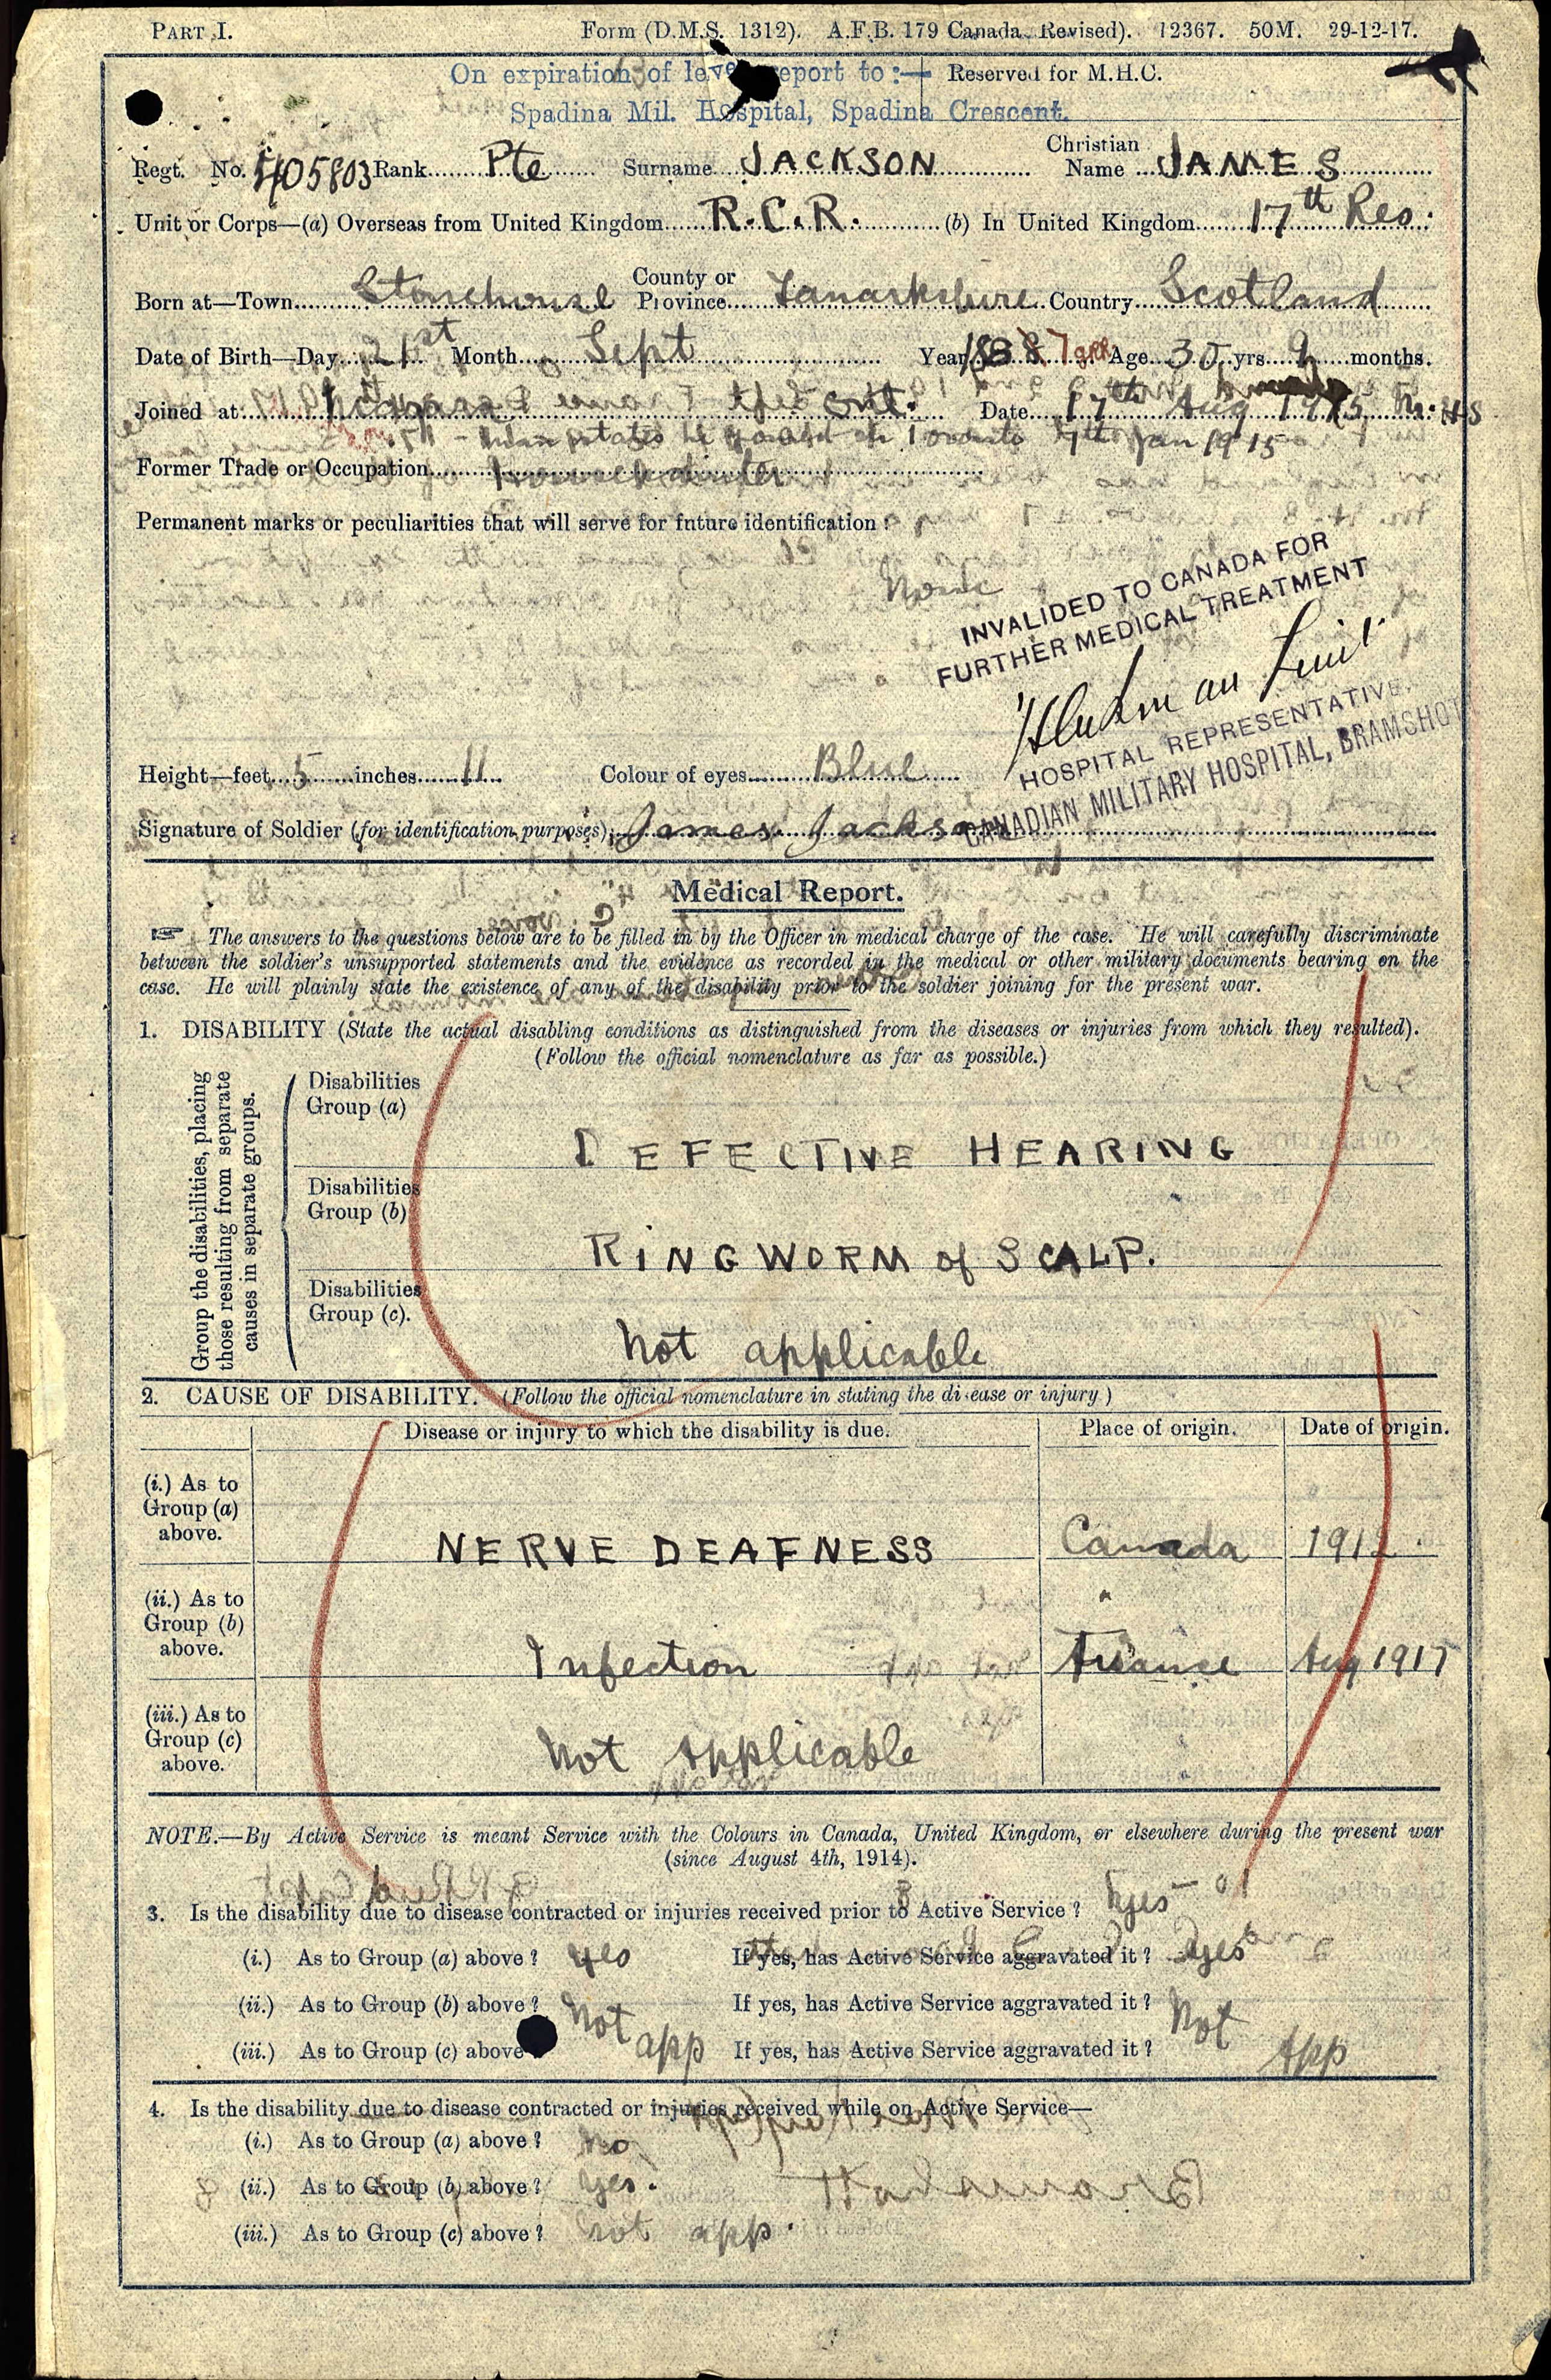 PART I. Form (D.M.S. 1312). A.F.B. 179 Canada. Revised). 12367. 50M. 29-12-17.
On expiration of leve report to :— Reserved for M.H.C.
Spadina Mil. Hospital, Spadina Crescent.
Regt. No. 405803 Rank Pte Surname JACKSON Christian Name JAMES
Unit or Corps—(a) Overseas from United Kingdom R.C.R. (b) In United Kingdom 17th Res.
Born at—Town Stonehouse County or Province Lanarkshire Country Scotland
Date of Birth—Day 21st Month Sept Year 188 7 Age 30 yrs 9 months.
Joined at Ont. Date 17th Aug 1915 M.H.S
states he joined in Toronto 7th Jan 1915
Former Trade or Occupation
Permanent marks or peculiarities that will serve for future identification :
None
INVALIDED TO CANADA FOR
FURTHER MEDICAL TREATMENT
HOSPITAL REPRESENTATIVE,
CANADIAN MILITARY HOSPITAL, BRAMSHOT
Height—feet 5 inches 11 Colour of eyes Blue
Signature of Soldier (for identification purposes): James Jackson
Medical Report.
The answers to the questions below are to be filled in by the Officer in medical charge of the case. He will carefully discriminate
between the soldier's unsupported statements and the evidence as recorded in the medical or other military documents bearing on the
case. He will plainly state the existence of any of the disability prior to the soldier joining for the present war.
1. DISABILITY (State the actual disabling conditions as distinguished from the diseases or injuries from which they resulted).
(Follow the official nomenclature as far as possible.)
Group the disabilities, placing
those resulting from separate
causes in separate groups.
Disabilities
Group (a)
DEFECTIVE HEARING
Disabilities
Group (b)
RINGWORM of SCALP.
Disabilities
Group (c).
Not applicable
2. CAUSE OF DISABILITY. (Follow the official nomenclature in stating the disease or injury.)
Disease or injury to which the disability is due. Place of origin. Date of origin.
(i.) As to
Group (a)
above.
NERVE DEAFNESS Canada 1912
(ii.) As to
Group (b)
above.
Infection France Aug 1917
(iii.) As to
Group (c)
above.
Not Applicable
NOTE.—By Active Service is meant Service with the Colours in Canada, United Kingdom, or elsewhere during the present war
(since August 4th, 1914).
3. Is the disability due to disease contracted or injuries received prior to Active Service? Yes
(i.) As to Group (a) above? Yes If yes, has Active Service aggravated it? Yes
(ii.) As to Group (b) above? Not If yes, has Active Service aggravated it? Not
(iii.) As to Group (c) above app If yes, has Active Service aggravated it? App
4. Is the disability due to disease contracted or injuries received while on Active Service—
(i.) As to Group (a) above? No
(ii.) As to Group (b) above? Yes.
(iii.) As to Group (c) above? not app.